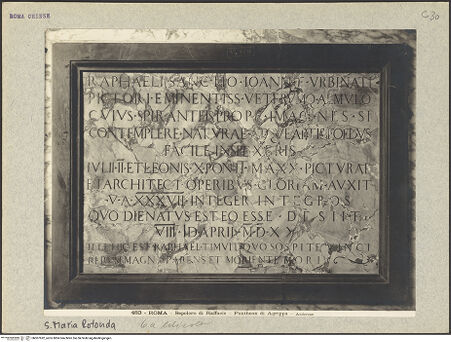 ROMA CHIESE
C 30
RAPHAELI · SANCTIO · IOANN · F · VRBINATI
PICTORI · EMINENTISS · VETERVMQ · AEMVLO
CVIVS · SPIRANTEIS · PROPE · IMAGINEIS · SI
CONTEMPLERE · NATVRAE · ATQVE · ARTIS · FOEDVS
FACILE · INSPEXERIS
IVLII · II · ET · LEONIS · X · PONTT · MAXX · PICTVRAE
ET ARCHITECT · OPERIBVS · GLORIAM · AVXIT
V · A · XXXVII · INTEGER · INTEGROS
QVO DIE NATVS EST EO ESSE · DESIIT
VIII · ID APRIL · M·D·XX
ILLE HIC EST RAPHAEL TIMVIT QVO SOSPITE VINCI
RERVM MAGNA PARENS ET MORIENTE MORI
ROMA - Sepolcro di Raffaele - Pantheon di Agrippa -
S. Maria Rotonda